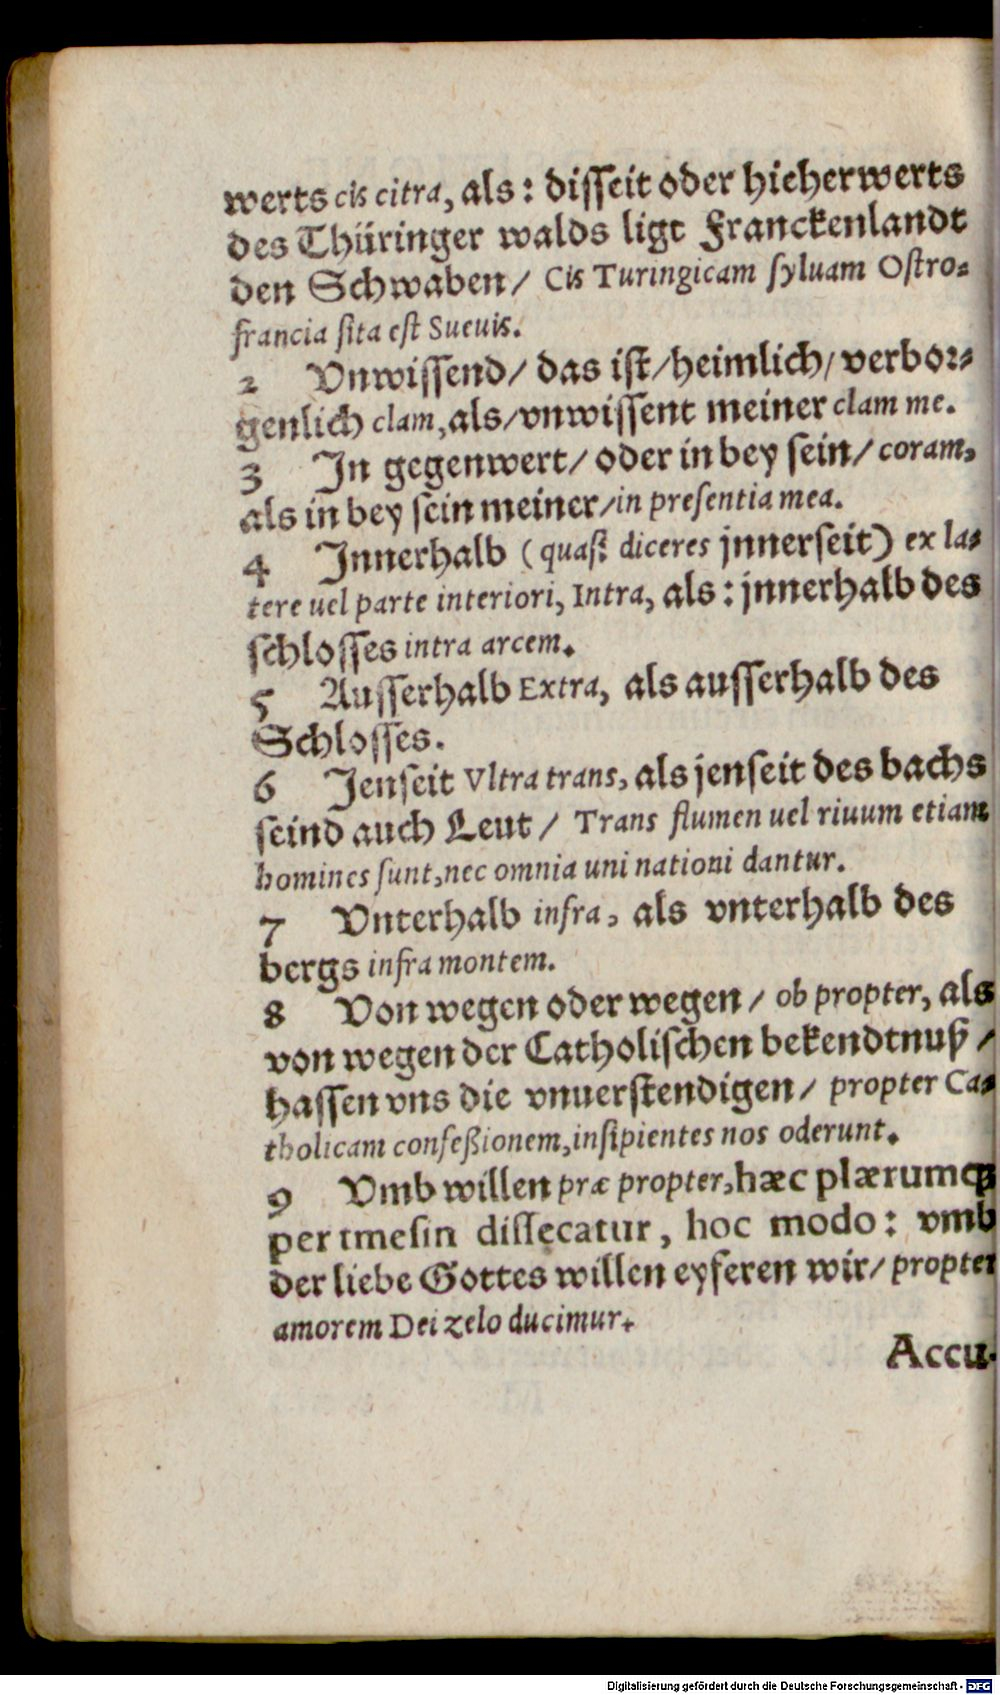 werts cis citra, als: disseit oder hieherwerts
des Thüringer walds ligt Franckenlandt
den Schwaben/ Cis Turingicam syluam Ostro-
francia sita est Sueuis.
2 Vnwissend/ das ist/heimlich/ verbor-
genlich clam, als/vnwissent meiner clam me.
3 In gegenwert/ oder in bey sein/ coram,
als in bey sein meiner/in presentia mea.
4 Innerhalb (quasi diceres jnnerseit) ex la-
tere uel parte interiori, Intra, als: jnnerhalb des
schlosses intra arcem.
5 Ausserhalb Extra, als ausserhalb des
Schlosses.
6 Jenseit Vltra trans, als jenseit des bachs
seind auch Leut / Trans flumen uel riuum etiam
homines sunt, nec omnia uni nationi dantur.
7 Vnterhalb infra, als vnterhalb des
bergs infra montem.
8 Von wegen oder wegen / ob propter, als
von wegen der Catholischen bekendtnuß /
hassen vns die vnuerstendigen / propter Ca-
tholicam confeßionem, insipientes nos oderunt.
9 Vmb willen præ propter, hæc plærumq;
per tmesin dissecatur, hoc modo: vmb
der liebe Gottes willen eyferen wir/ propter
amorem Dei zelo ducimur.
Accu-
Digitalisierung gefördert durch die Deutsche Forschungsgemeinschaft - DFG